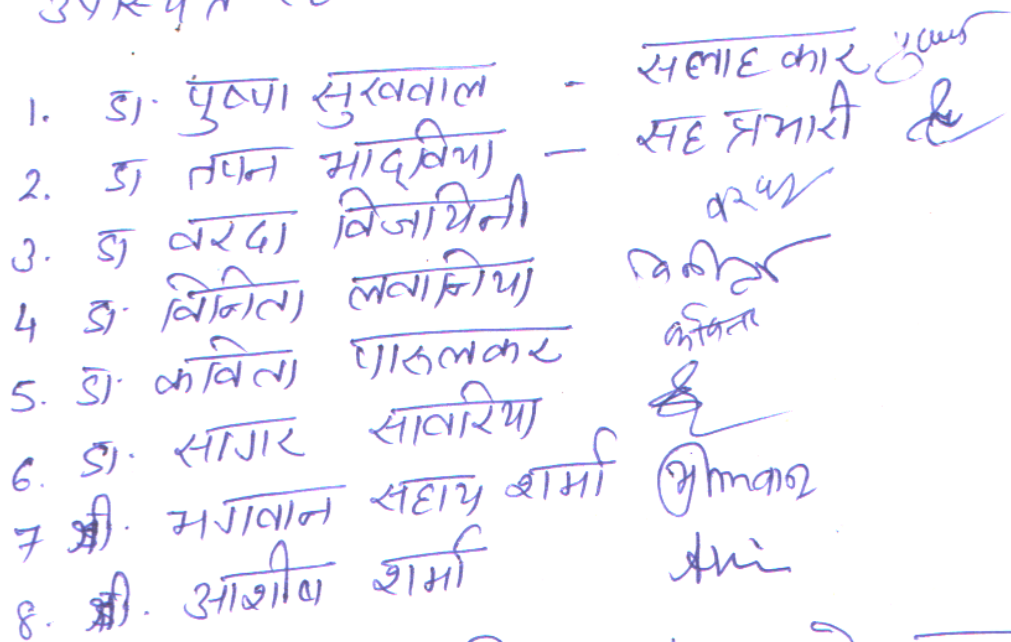 1. डा. पुष्पा सुखवाल - सलाहकार
2. डा तपन भादविया - सह प्रभारी
3. डा वरदा विजायिनी वरदा
4 डा. विनिता लवानिया विनीता
5. डा. कविता पारुलकर कविता
6. डा. सागर सावरिया
7 श्री. भगवान सहाय शर्मा भगवान
8. श्री. आशीष शर्मा